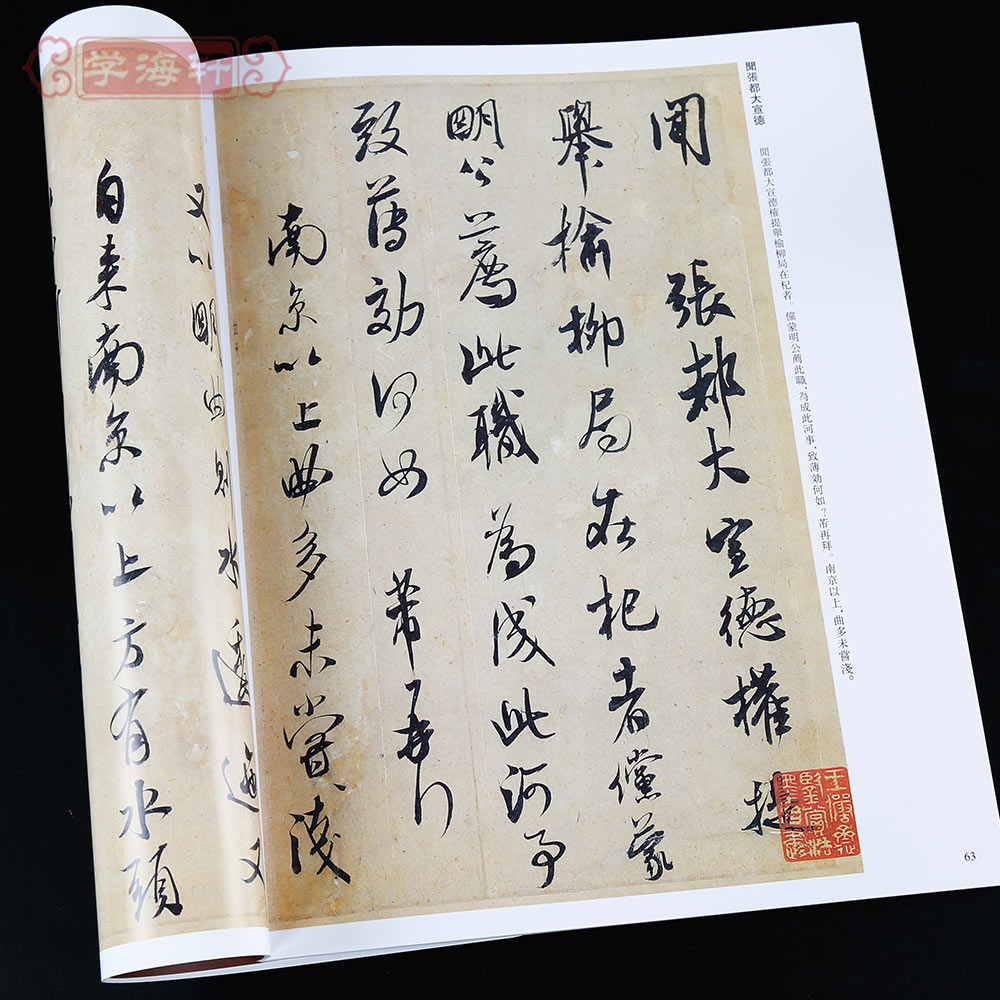 学海轩
聞張都大宣德
聞張都大宣德權提舉榆柳局在杞者。儻蒙明公薦此職,為成此河事,致薄效何如?芾再拜。南京以上,曲多未嘗淺。
聞 張都大宣德權提
舉榆柳局在杞者儻蒙
明公薦此職為成此河事
致薄効何如 芾再拜
南京以上曲多未嘗淺
63
又以明曲則水遠
自來南京以上方有水頭